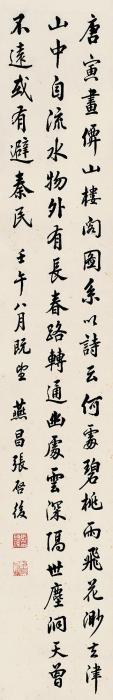 唐寅畫僲山樓閣圖系以詩云何處碧桃雨飛花渺去津
山中自流水物外有長春路轉通幽處雲深隔世塵洞天曾
不遠或有避秦民 壬午八月既望 燕昌張啓後